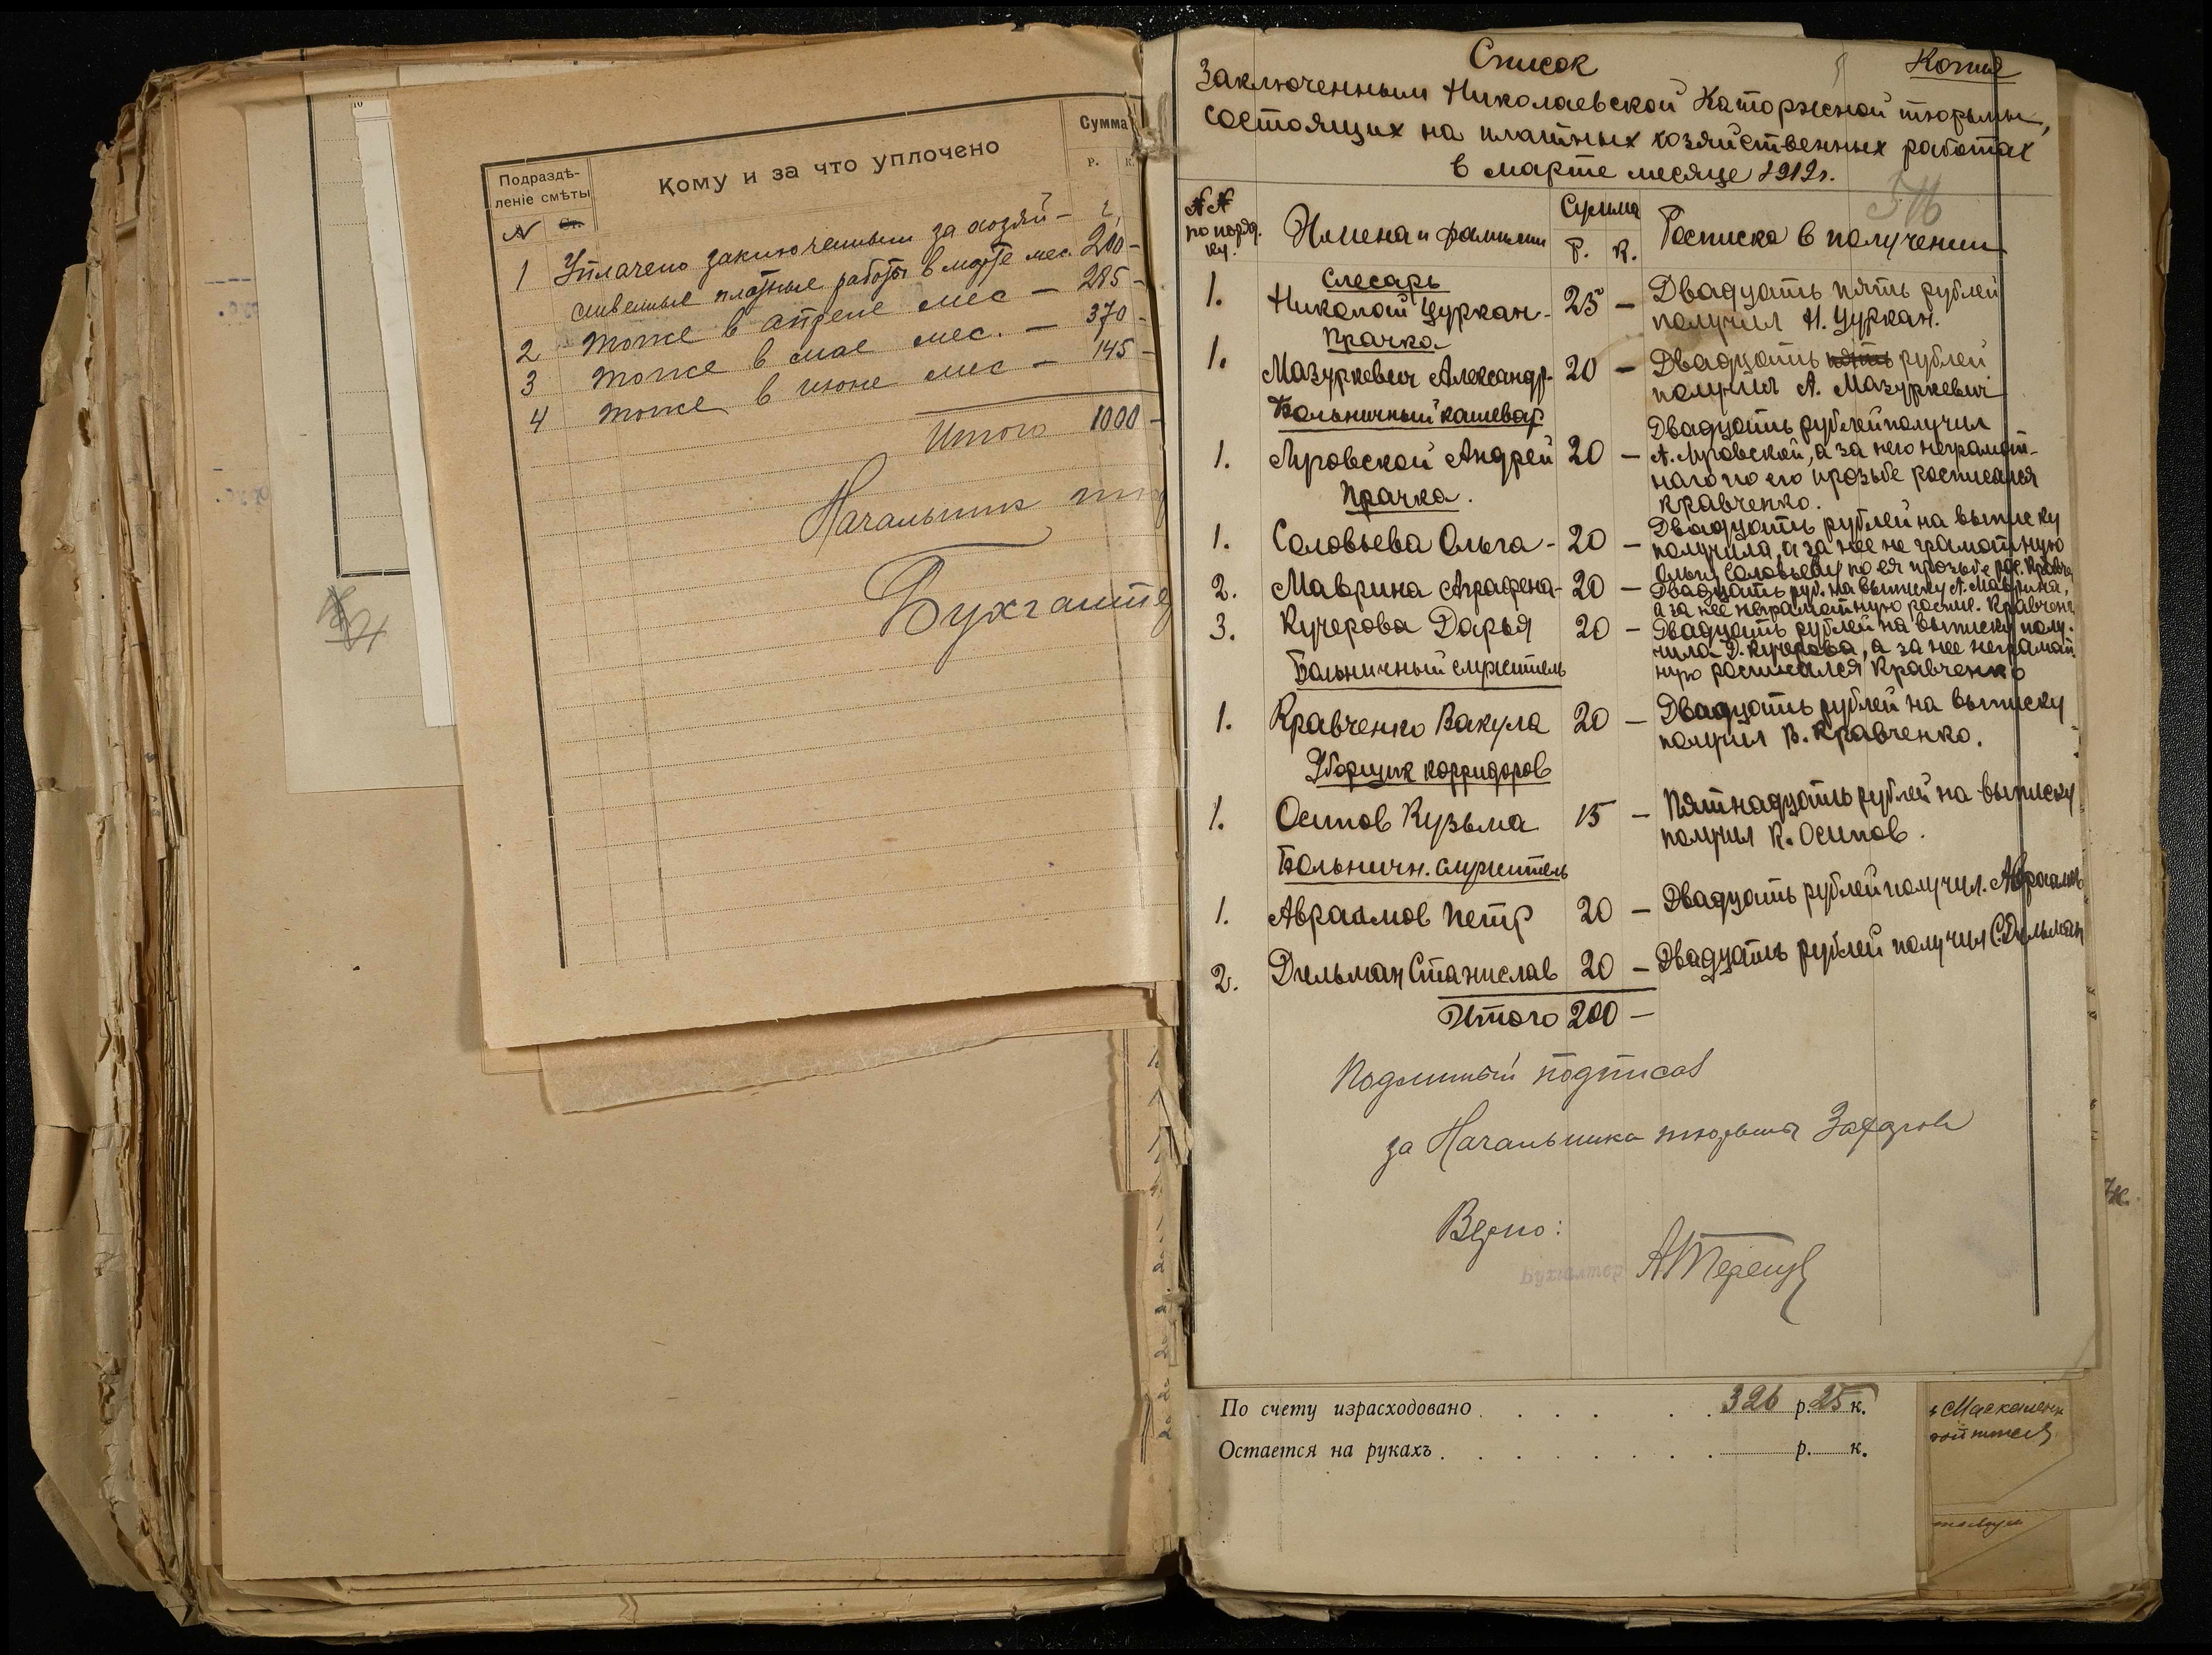 Подраздѣ-
леніе смѣты
№ Ст.
Кому и за что уплочено
Сумма
Р. К.
1 Уплачено заключенным за хозяй-
ственные платные работы в марте мес. 200 -
2 тоже в апреле мес - 285 -
3 тоже в мае мес. - 370 -
4 тоже в июне мес - 145 -
Итого 1000 -
Начальник
Бухгалте
Список
Копия
Заключенным Николаевской Каторжной тюрьмы,
состоящих на платных хозяйственных работах
в марте месяце 1919 г.
№№
по поряд.
ку.
Имена и фамилии
Сумма
Р. К.
Росписка в получении
Слесарь
1. Николай Цуркан - 25 - Двадцать пять рублей
получил Н. Цуркан.
Прачка
1. Мазуркевич Александр. 20 - Двадцать пять рублей
получил А. Мазуркевич
Больничный кашевар
1. Луговской Андрей 20 - Двадцать рублей получил
А. Луговской, а за него неграмот-
наго по его прозьбе росписался
Кравченко.
Прачка.
1. Соловьева Ольга - 20 - Двадцать рублей на выписку
получила, а за нее не грамотную
Ольгу Соловьеву по ея прозьбе рос. Кравч
2. Маврина Аграфена - 20 - Двадцать руб. на выписку А. Маврина,
а за нее неграмотную роспис. Кравчен
3. Кучерова Дарья 20 - Двадцать рублей на выписку полу-
чила Д. Кучерова, а за нее неграмот
ную росписался Кравченко
Больничный служитель
1. Кравченко Вакула 20 - Двадцать рублей на выписку
получил В. Кравченко.
Уборщик корридоров
1. Осипов Кузьма 15 - Пятнадцать рублей на выписку
получил К. Осипов.
Больничн. служитель
1. Авраамов Петр 20 - Двадцать рублей получил. Авраамов
2. Дильман Станислав 20 - Двадцать рублей получил С. Дильман
Итого 200 -
Подлинный подписал
за Начальника тюрьмы
Верно:
Бухгалтер
По счету израсходовано 326 р. 25 к.
Остается на рукахъ р. к.